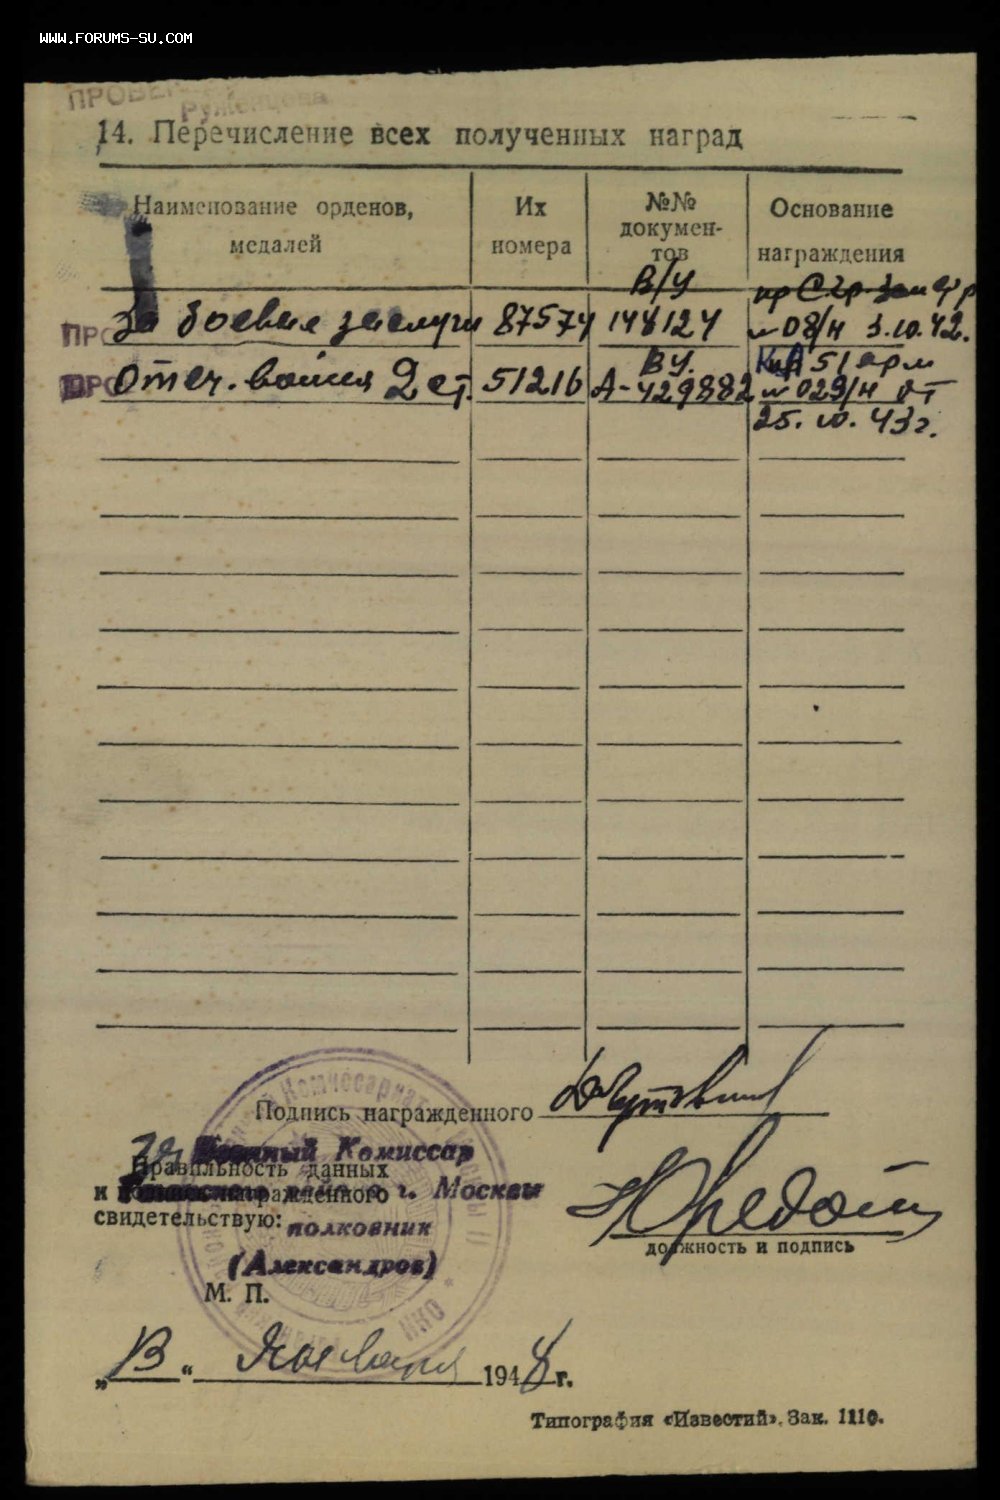 WWW.FORUMS-SU.COM
14. Перечисление всех полученных наград
Наименование орденов, медалей
Их номера
№№ документов
Основание награждения
За боевые заслуги 87574 В/У 148124 пр № 08/н 3.10.42.
Отеч. война 2 ст. 51216 ВУ. А-429882 51 арм № 029/н от 25.10.43г.
Подпись награжденного
Военный Комиссар
Правильность данных
и награжденного г. Москвы
свидетельствую: полковник
(Александров)
должность и подпись
М. П.
„13“ Января 1948 г.
Типография «Известий». Зак. 1110.